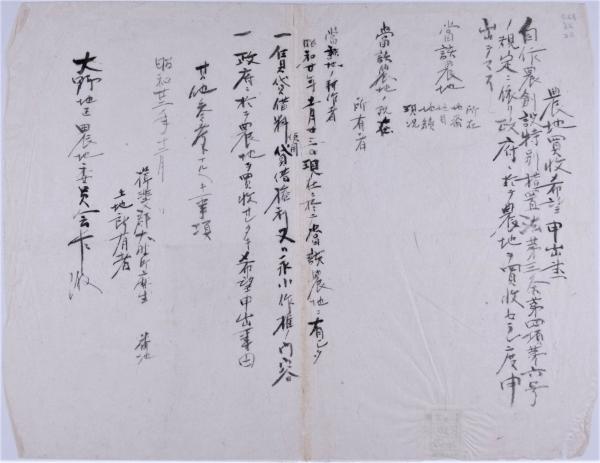 農地買收希望申出書
自作農創設特別措置法第三条第四項第六号
ノ規定ニ依リ政府ニ於テ農地ヲ買收セラレ度申
出テマス
當該農地 所在
地番
地目
地積
現況
當該農地ノ現在
所有者
當該地ノ耕作者
昭和廿年十一月廿三日現在ニ於テ當該農地ニ有セシ
一 賃貸借料 貸借權利又ハ永小作権ノ内容
使用
一 政府ニ於テ農地ヲ買收セラルヽ希望申出事由
其他参考トナルヘキ事項
昭和廿二年十二月
揖斐郡大野町麻生 番地
土地所有者
大野地区農地委員会 御中